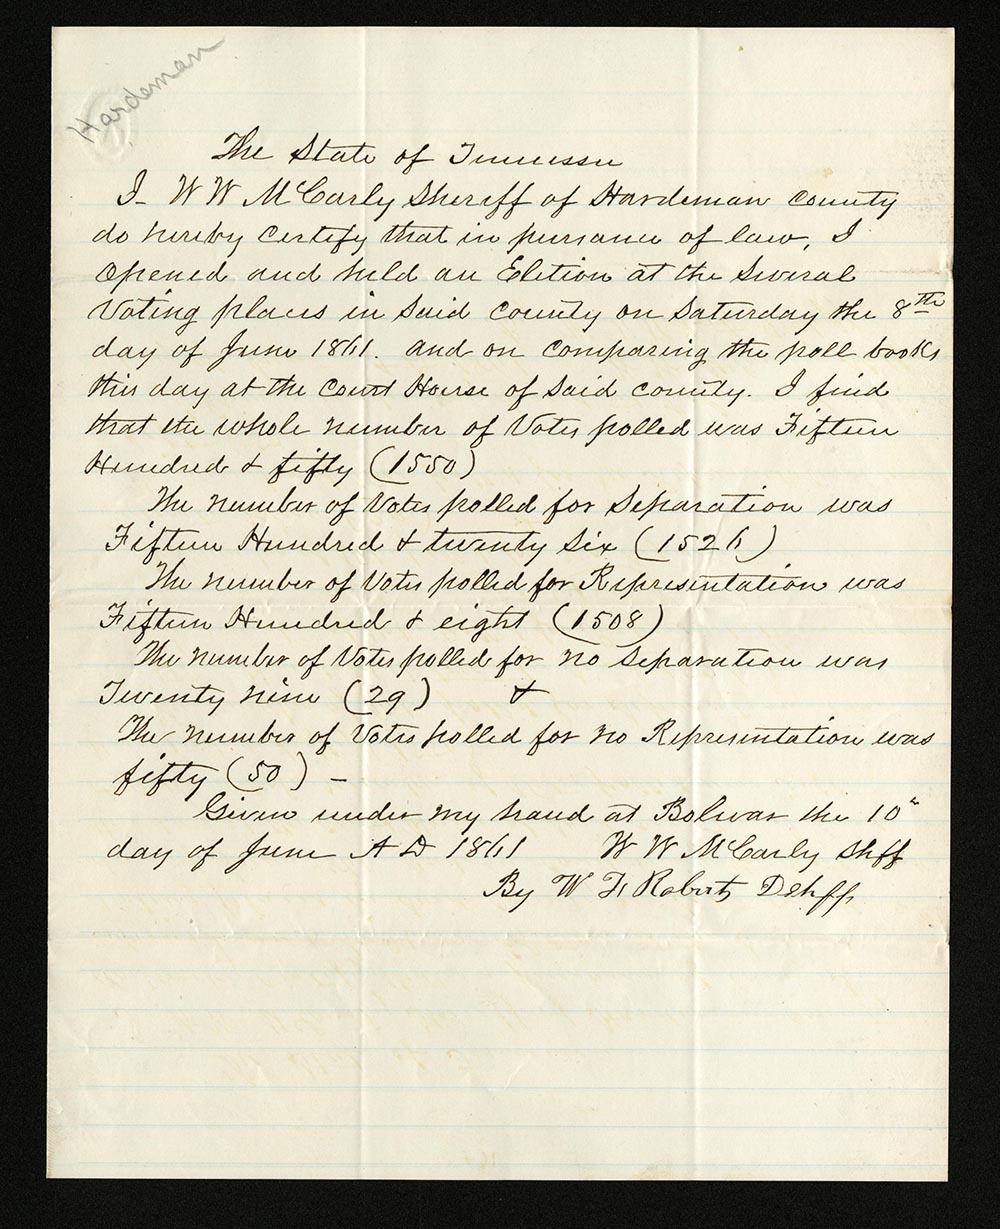 Hardeman
The State of Tennessee
I- W W McCarly Sheriff of Hardeman county
do hereby certify that in pursuance of law, I
opened and held an Eletion at the Several
Voting places in Said County on Saturday the 8th
day of June 1861. and on comparing the poll books
this day at the Court House of Said county. I find
that the whole number of Votes polled was Fifteen
Hundred & fifty (1550)
The number of Votes polled for Separation was
Fifteen Hundred & twenty Six (1526)
The number of Votes polled for Representation was
Fifteen Hundred & eight (1508)
The number of Votes polled for no Separation was
Twenty nine (29) &
The number of Votes polled for no Representation was
fifty (50) -
Given under my hand at Bolivar the 10"
day of June A D 1861 W W McCarly Shff
By W F. Roberts D Shff